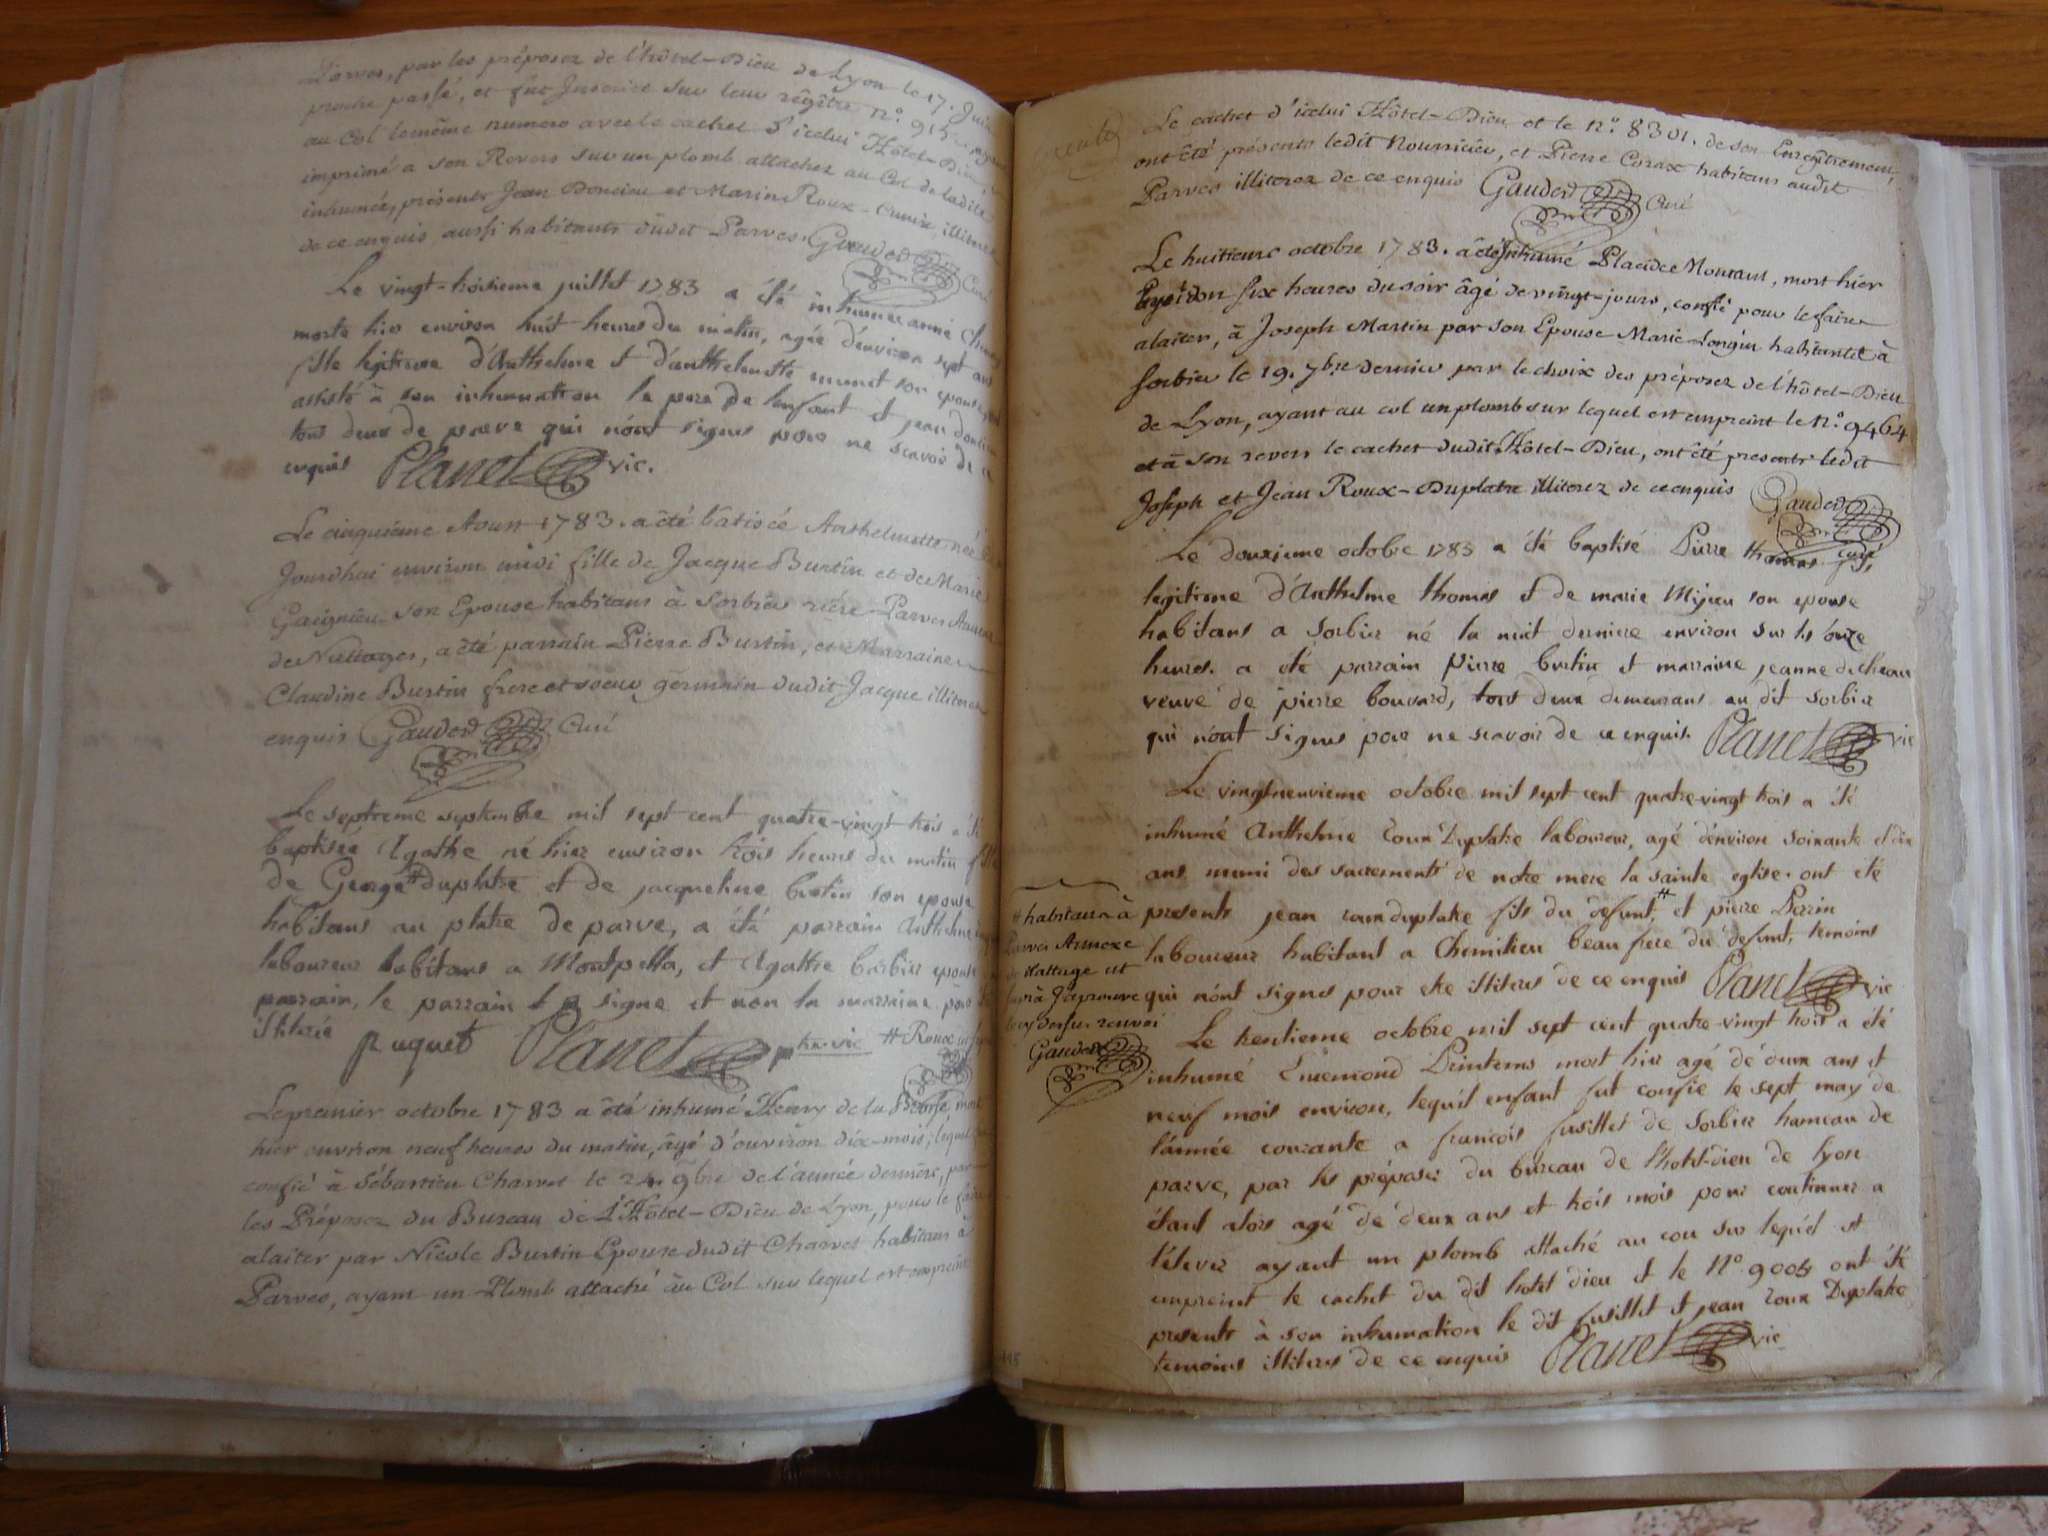 Parves, par les préposez de l'hôtel-Dieu de Lyon le 17. Juin
proche passé, et fut Inscrite sur leur régître n.º 915
au Col le même numero avec le cachet d'icelui Hôtel-Dieu
imprimé a son Revers sur un plomb attachez au Col de ladite
inhumée, présents Jean Doncieu et Marin Roux-Cunin illiterez
de ce enquis aussi habitants dudit Parves. Gauderd Curé
Le vingt-troisieme juillet 1783 a été inhumée anne
morte hier environ huit heures du matin, agée d'environ sept ans
fille legitime d'Anthelme et d'anthelmette son epouse
assisté à son inhumation le pere de l'enfant et jean
tous deux de parve qui n'ont signes pour ne scavoir de ce
enquis Planet vic.
Le cinquieme Aoust 1783. a été batisée Anthelmette née
Jourdhui environ midi fille de Jacque Burtin et de Marie
Gaignieu son Epouse habitans à Sorbier riére Parves Annexe
de Nattages, a été parrain Pierre Burtin, et Marraine
Claudine Burtin frere et soeur germain dudit Jacque illiterez
enquis Gauderd Curé
Le septieme septembre mil sept cent quatre-vingt trois a été
baptisée Agathe né hier environ trois heures du matin fille
de George # duplatre et de jacqueline burtin son epouse
habitans au platre de parve, a été parrain Anthelme
laboureur habitans a Montpella, et Agathe barbier epouse
parrain, le parrain a signe et non la marraine pour
illiterée puguet Planet vic # Roux
Le premier octobre 1783 a été inhumé Henry de la mort
hier environ neuf heures du matin, âgé d'environ dix-mois, lequel
confié à Sébastien Charvet le 24 9bre de l'année derniere, par
les Préposez du Bureau de L'Hôtel-Dieu de Lyon, pour le faire
alaiter par Nicole Burtin Epouse dudit Charvet habitans à
Parves, ayant un Plomb attaché au Col sur lequel est empreint
Le cachet d'icelui Hôtel-Dieu et le n.º 8301. de son Enregîtrement,
ont été présents ledit Nourricier, et Pierre Corax habitans audit
Parves illiterez de ce enquis Gauderd Curé
Le huitieme octobre 1783. a été Inhumé Placide Mourant, mort hier
environ six heures du soir âgé de vingt-jours, confié pour le faire
alaiter, à Joseph Martin par son Epouse Marie Longin habitants à
Sorbier le 19. 7bre dernier par le choix des préposez de l'hôtel-Dieu
de Lyon, ayant au col un plomb sur lequel est empreint le n.º 9464
et à son revers le cachet dudit Hôtel-Dieu, ont été presents ledit
Joseph et Jean Roux-Duplatre illiterez de ce enquis Gauderd
curé
Le douzieme octobre 1783 a été baptisé Pierre thomas fils
legitime d'Anthelme thomas et de marie Mijieu son epouse
habitans a Sorbier né la nuit derniere environ sur les onze
heures. a été parrain Pierre burtin et marraine jeanne
veuve de pierre bouvard, tous deux demeurans au dit Sorbier
qui n'ont signes pour ne scavoir de ce enquis. Planet vic
Le vingtneuvieme octobre mil sept cent quatre-vingt trois a été
inhumé Anthelme roux Duplatre laboureur, agé d'environ soixante et dix
ans muni des sacrements de notre mere la sainte eglise. ont été
presents jean roux duplatre fils du defunt, # et pierre Perrin
laboureur habitant a Chemilieu beau frere du defunt, temoins
qui n'ont signes pour etre illiteres de ce enquis Planet vic
# habitans à
Parves Annexe
de Nattage et
j'approuve
le cy dessus renvoi
Gauderd
Le trentieme octobre mil sept cent quatre-vingt trois a été
inhumé Ennemond Printems mort hier agé de deux ans et
neuf mois environ, lequel enfant fut confie le sept may de
l'année courante a françois fusillet de Sorbier hameau de
parve, par les préposés du bureau de l'hotel-dieu de lyon
étant alors agé de deux ans et trois mois pour continuer a
l'élever ayant un plomb attaché au cou sur lequel et
empreint le cachet du dit hotel dieu et le N.º 9005 ont été
presents à son inhumation le dit fusillet et jean roux Duplatre
temoins illiteres de ce enquis Planet vic